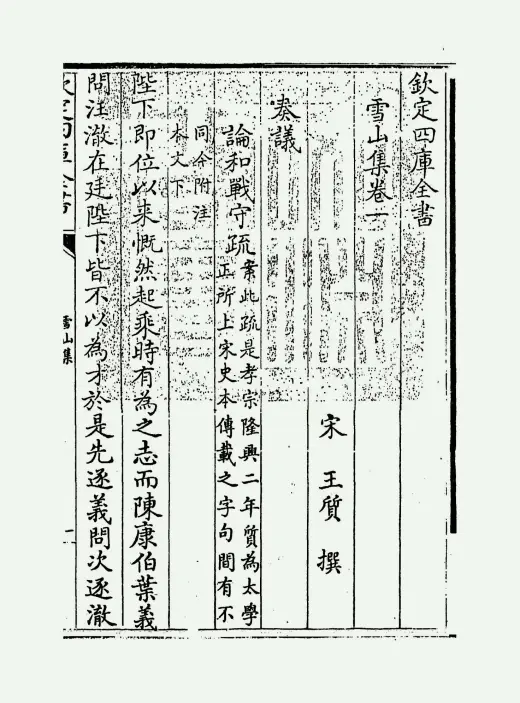 欽定四庫全書
雪山集卷一
宋 王質 撰
奏議
論和戰守疏 案此疏是孝宗隆興二年質為太學
正所上宋史本傳載之字句間有不
同今附注
本文下
陛下即位以來慨然起乘時有為之志而陳康伯葉義
問汪澈在廷陛下皆不以為才於是先逐義問次逐澈
欽定四庫全書
雪山集
一